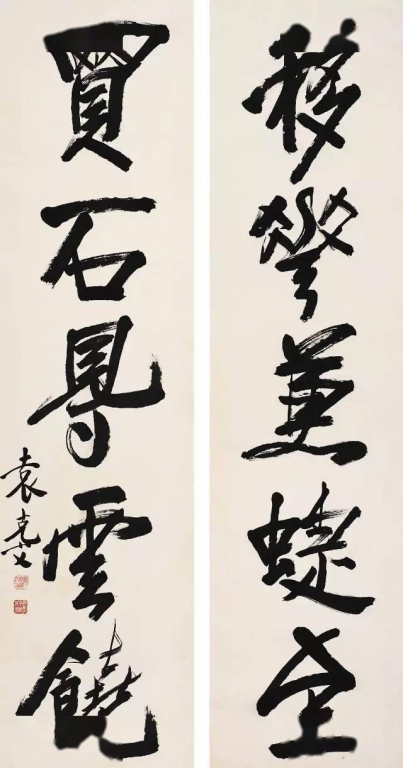 移華兼蝶至
買石得雲饒
袁克文